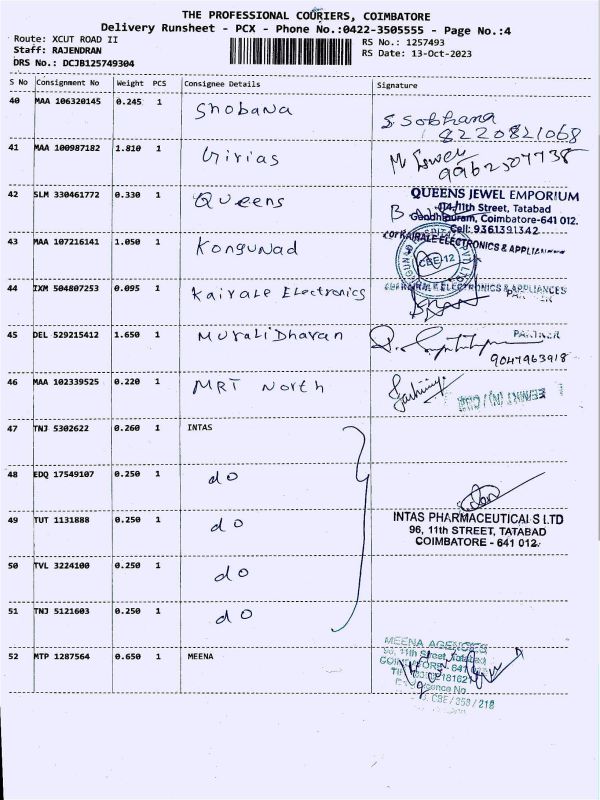 THE PROFESSIONAL COURIERS, COIMBATORE
Delivery Runsheet - PCX - Phone No.:0422-3505555 - Page No.:4
Route: XCUT ROAD II
RS No.: 1257493
Staff: RAJENDRAN
RS Date: 13-Oct-2023
DRS No.: DCJB125749304
S No Consignment No Weight PCS Consignee Details Signature
40 MAA 106320145 0.245 1 Shobana S. Sobhana
8220821068
41 MAA 100987182 1.810 1 Girias
9962307738
42 SLM 330461772 0.330 1 Queens
QUEENS JEWEL EMPORIUM
114/11th Street, Tatabad
Gandhipuram, Coimbatore-641 012.
Cell: 9361391342
43 MAA 107216141 1.050 1 Kongunad
For KAIRALE ELECTRONICS & APPLIANCES
CBE-12
44 IXM 504807253 0.095 1 Kairale Electronics
KAIRALE ELECTRONICS & APPLIANCES
PARTNER
45 DEL 529215412 1.650 1 Murali Dharan
PARTNER
9047963918
46 MAA 102339525 0.220 1 MRT North
47 TNJ 5302622 0.260 1 INTAS
48 EDQ 17549107 0.250 1 do
49 TUT 1131888 0.250 1 do
INTAS PHARMACEUTICALS LTD
96, 11th STREET, TATABAD
COIMBATORE - 641 012.
50 TVL 3224100 0.250 1 do
51 TNJ 5121603 0.250 1 do
52 MTP 1287564 0.650 1 MEENA
MEENA AGENCIES
11th Street, Tatabad
COIMBATORE - 641
CBE / 358 / 218